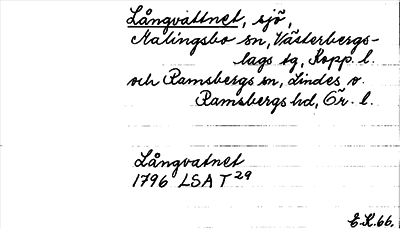 Långvattnet, sjö,
Malingsbo sn, Västerbergs-
lags tg, Kopp. l.
och Ramsbergs sn, Lindes o.
Ramsbergs hd, Ör. l.
Långvatnet
1796 LSA T 29
E.K. 66.